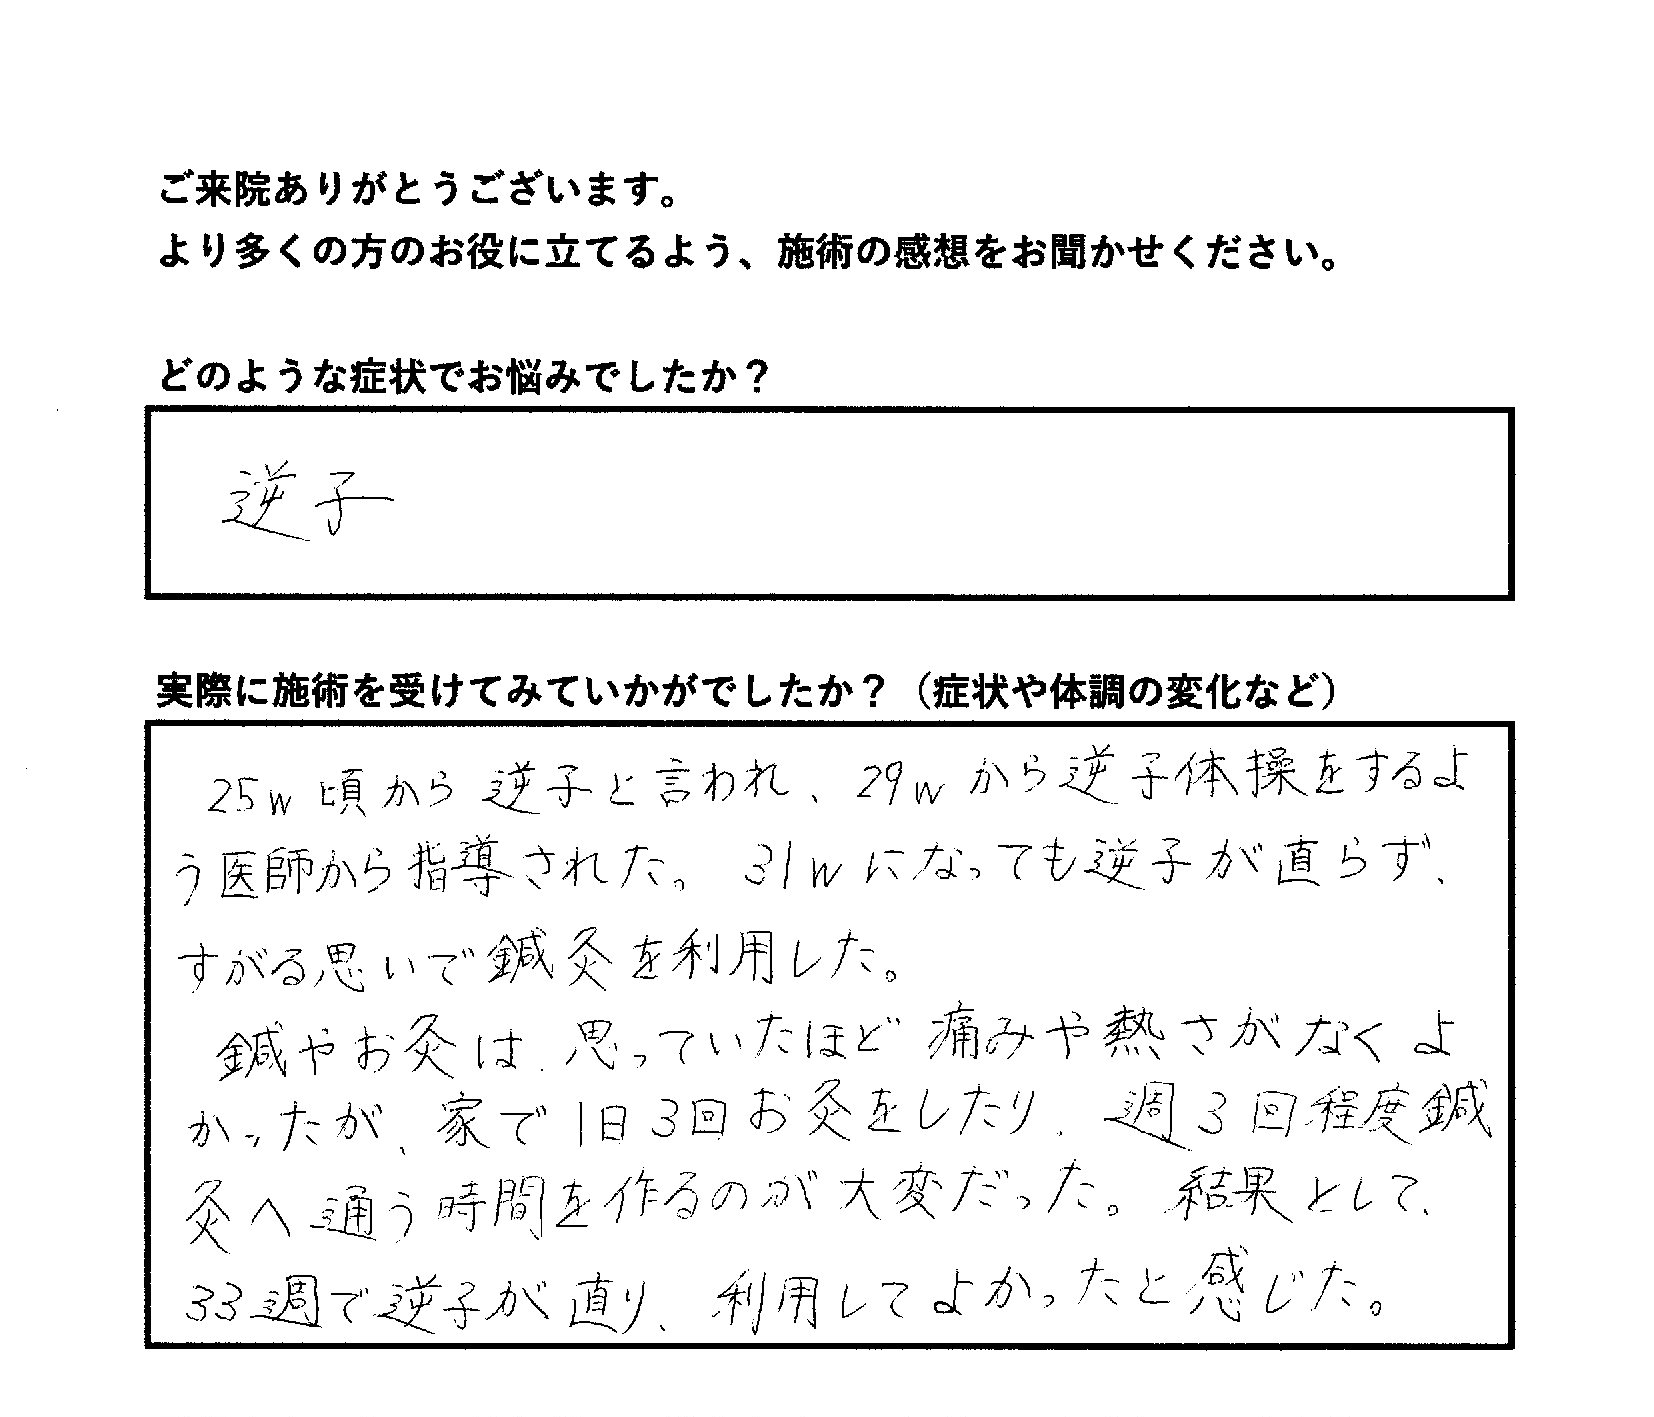 ご来院ありがとうございます。
より多くの方のお役に立てるよう、施術の感想をお聞かせください。
どのような症状でお悩みでしたか？
逆子
実際に施術を受けてみていかがでしたか？（症状や体調の変化など）
25w頃から逆子と言われ、29wから逆子体操をするよ
う医師から指導された。31wになっても逆子が直らず、
すがる思いで鍼灸を利用した。
鍼やお灸は、思っていたほど痛みや熱さがなくよ
かったが、家で1日3回お灸をしたり、週3回程度鍼
灸へ通う時間を作るのが大変だった。結果として、
33週で逆子が直り、利用してよかったと感じた。